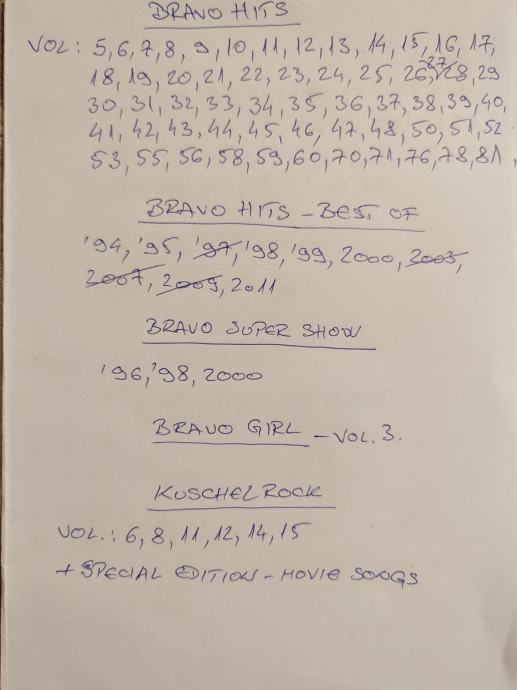 BRAVO HITS
VOL: 5, 6, 7, 8, 9, 10, 11, 12, 13, 14, 15, 16, 17,
18, 19, 20, 21, 22, 23, 24, 25, 26, 27, 28, 29
30, 31, 32, 33, 34, 35, 36, 37, 38, 39, 40,
41, 42, 43, 44, 45, 46, 47, 48, 50, 51, 52
53, 55, 56, 58, 59, 60, 70, 71, 76, 78, 81,
BRAVO HITS - BEST OF
'94, '95, '97, '98, '99, 2000, 2003,
2007, 2009, 2011
BRAVO SUPER SHOW
'96, '98, 2000
BRAVO GIRL - VOL. 3.
KUSCHELROCK
VOL.: 6, 8, 11, 12, 14, 15
+ SPECIAL EDITION - MOVIE SONGS